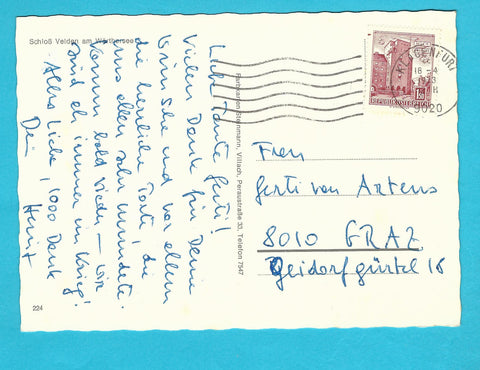 Schloß Velden am Wörthersee
Liebe Tante Gerti!
Vielen Dank für Deine
Wünsche und vor allem
die herrliche Torte, die
uns allen sehr mundete.
Komm bald wieder – wir
sind eh immer im Krieg!
Alles Liebe, 1000 Dank
Dein
224
Villach, Peraustraße 33, Telefon 7547
KLAGENFURT
18 -4
9020
REPUBLIK ÖSTERREICH
Frau
Gerti von Artens
8010 GRAZ
Geidorfgürtel 18